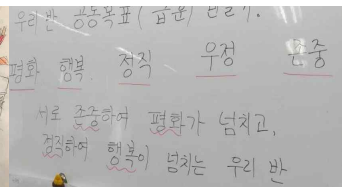 우리반 공동목표(급훈) 만들기.
평화 행복 정직 우정 존중
서로 존중하여 평화가 넘치고,
정직하여 행복이 넘치는 우리 반